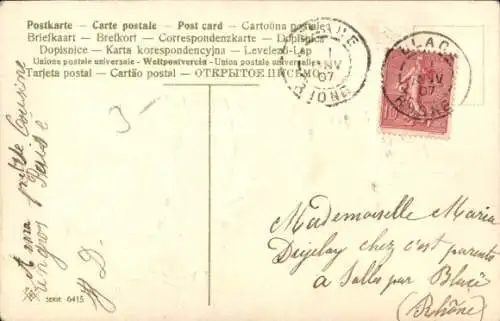 Postkarte - Carte postale - Post card - Cartolina postale
Briefkaart - Brefkort - Correspondenzkarte - Dopisnica
Dopisnice - Karta korespondencyjna - Levelező-Lap
Union postale universelle - Weltpostverein - Union postale universelle
Tarjeta postal - Cartão postal - ОТКРЫТОЕ ПИСЬМО
BLACÉ
JANV
07
RHÔNE
A ma petite Cousine
Mademoiselle Maria
chez c'est parents
a Salles par Blacé
(Rhône)
Serie 6415